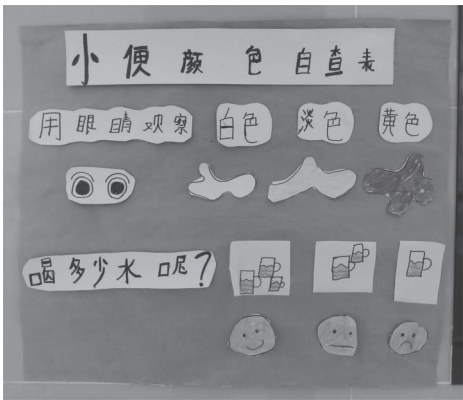 小便颜色自查表
用眼睛观察 白色 淡色 黄色
喝多少水呢?